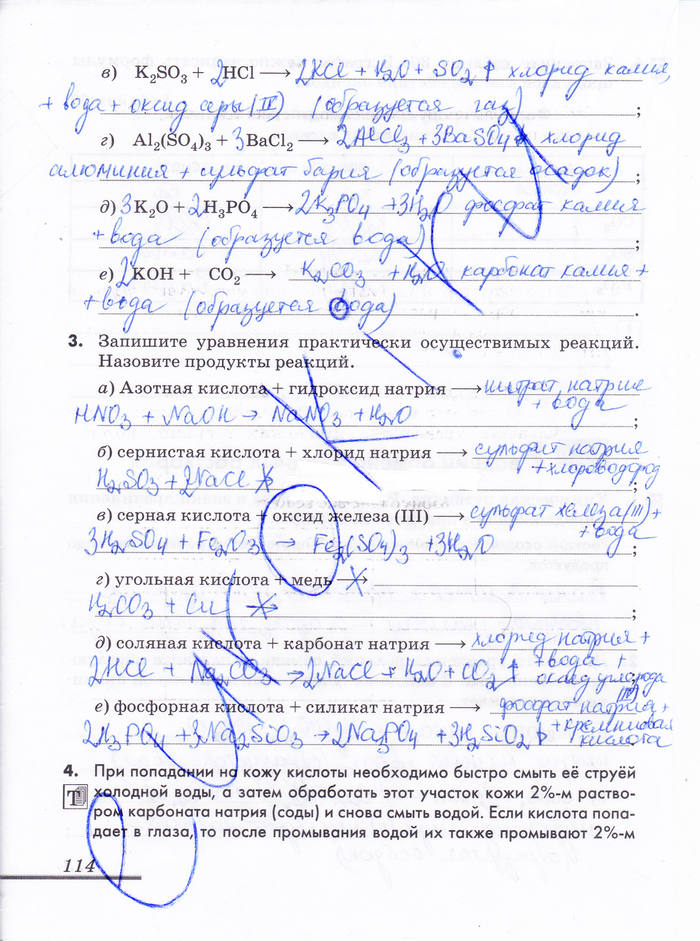 в) K₂SO₃ + 2HCl ⟶ 2KCl + H₂O + SO₂↑ хлорид калия,
+ вода + оксид серы (IV) (образуется газ) ;
г) Al₂(SO₄)₃ + 3BaCl₂ ⟶ 2AlCl₃ + 3BaSO₄↓ хлорид
алюминия + сульфат бария (образуется осадок) ;
д) 3K₂O + 2H₃PO₄ ⟶ 2K₃PO₄ + 3H₂O фосфат калия
+ вода (образуется вода) ;
е) 2KOH + CO₂ ⟶ K₂CO₃ + H₂O карбонат калия +
+ вода (образуется вода) .
3. Запишите уравнения практически осуществимых реакций.
Назовите продукты реакций.
а) Азотная кислота + гидроксид натрия ⟶ нитрат натрия
+ вода
HNO₃ + NaOH → NaNO₃ + H₂O ;
б) сернистая кислота + хлорид натрия ⟶ сульфит натрия
+ хлороводород
H₂SO₃ + 2NaCl ;
в) серная кислота + оксид железа (III) ⟶ сульфат железа (III) +
+ вода
3H₂SO₄ + Fe₂O₃ → Fe₂(SO₄)₃ + 3H₂O ;
г) угольная кислота + медь ⟶
H₂CO₃ + Cu ;
д) соляная кислота + карбонат натрия ⟶ хлорид натрия +
+ вода +
2HCl + Na₂CO₃ → 2NaCl + H₂O + CO₂↑ оксид углерода
(IV) ;
е) фосфорная кислота + силикат натрия ⟶ фосфат натрия +
+ кремниевая
2H₃PO₄ + 3Na₂SiO₃ → 2Na₃PO₄ + 3H₂SiO₂↓ кислота
4. При попадании на кожу кислоты необходимо быстро смыть её струёй
Т холодной воды, а затем обработать этот участок кожи 2%-м раство-
ром карбоната натрия (соды) и снова смыть водой. Если кислота попа-
дает в глаза, то после промывания водой их также промывают 2%-м
114